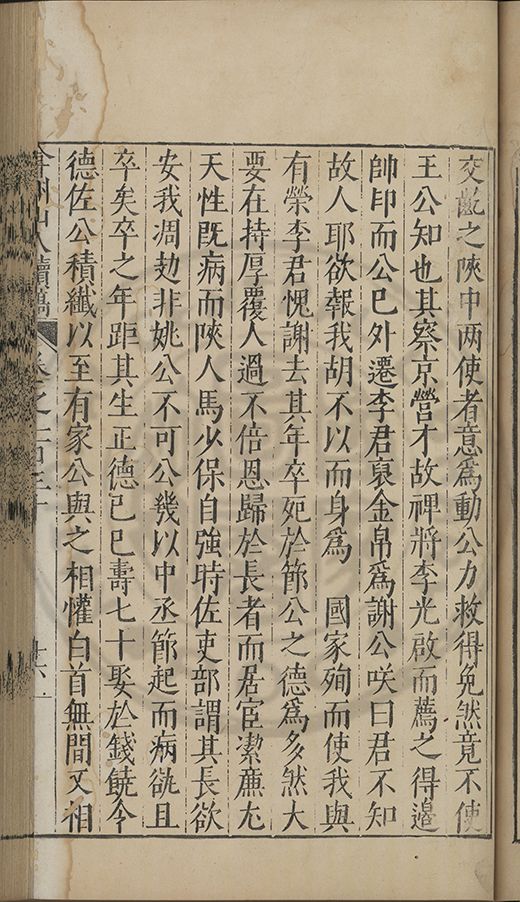 交齕之陜中两使者意爲動公力救得免然竟不使
王公知也其察京營才故裨將李光啟而薦之得邉
帥印而公已外遷李君裒金帛爲謝公咲曰君不知
故人耶欲報我胡不以而身爲 國家殉而使我與
有榮李君愧謝去其年卒死於節公之德爲多然大
要在持厚覆人過不倍恩歸於長者而居宦潔亷尤
天性旣病而陜人馬少保自強時佐吏部謂其長欲
安我凋攰非姚公不可公幾以中丞節起而病欲且
卒矣卒之年距其生正德已巳壽七十娶於錢饒今
德佐公積纖以至有家公與之相懽白首無間又相
弇州山人續稿